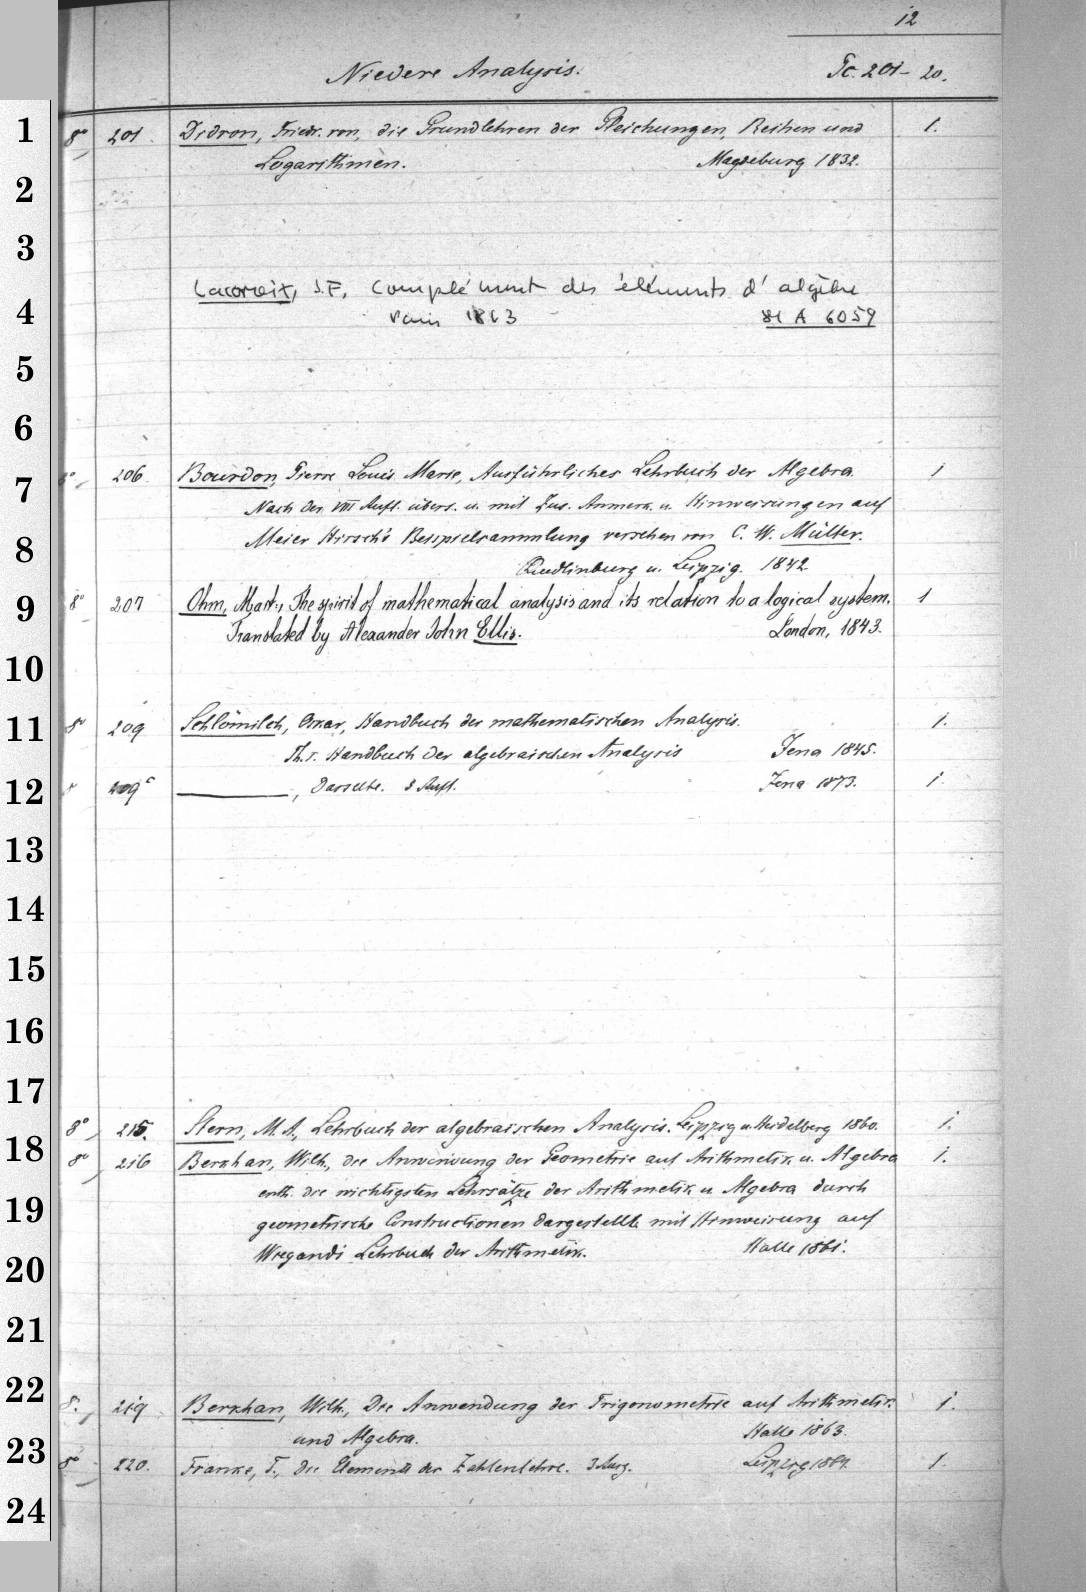 12
Niedere Analysis. Tc. 201-20.
1 8° 201. Didron, Friedr. von, die Grundlehren der Gleichungen, Reihen und 1.
Logarithmen. Magdeburg 1832.
2
3
Lacroix, S.F, Complément des éléments d'algèbre
4 Paris 1863 A 6059
5
6
8° 206. Bourdon, Pierre Louis Marie, Ausführliches Lehrbuch der Algebra 1
7 Nach der VIII Aufl. übers. u. mit Zus. Anmerk. u. Hinweisungen auf
Meier Hirsch's Beispielsammlung versehen von C. W. Müller.
8 Quedlinburg u. Leipzig. 1842
9 8° 207 Ohm, Mart., The spirit of mathematical analysis and its relation to a logical system. 1
Translated by Alexander John Ellis. London, 1843.
10
11 8° 209 Schlömilch, Oskar, Handbuch der mathematischen Analysis. 1.
Th. 1. Handbuch der algebraischen Analysis Jena 1845.
12 209 , Dasselbe. 5 Aufl. Jena 1873. 1.
13
14
15
16
17
8° 215. Stern, M. A., Lehrbuch der algebraischen Analysis. Leipzig u. Heidelberg 1860. 1.
18 8° 216 Berkhan, Wilh., die Anwendung der Geometrie auf Arithmetik u. Algebra 1.
enth. die wichtigsten Lehrsätze der Arithmetik u. Algebra durch
19 geometrische Constructionen dargestellt mit Hinweisung auf
20 Wiegands Lehrbuch der Arithmetik. Halle 1861.
21
22 8. 219 Berkhan, Wilh., Die Anwendung der Trigonometrie auf Arithmetik 1.
und Algebra. Halle 1863.
23 8° 220. Franke, T., die Elemente der Zahlenlehre. 3 Ausg. Leipzig 1864. 1
24